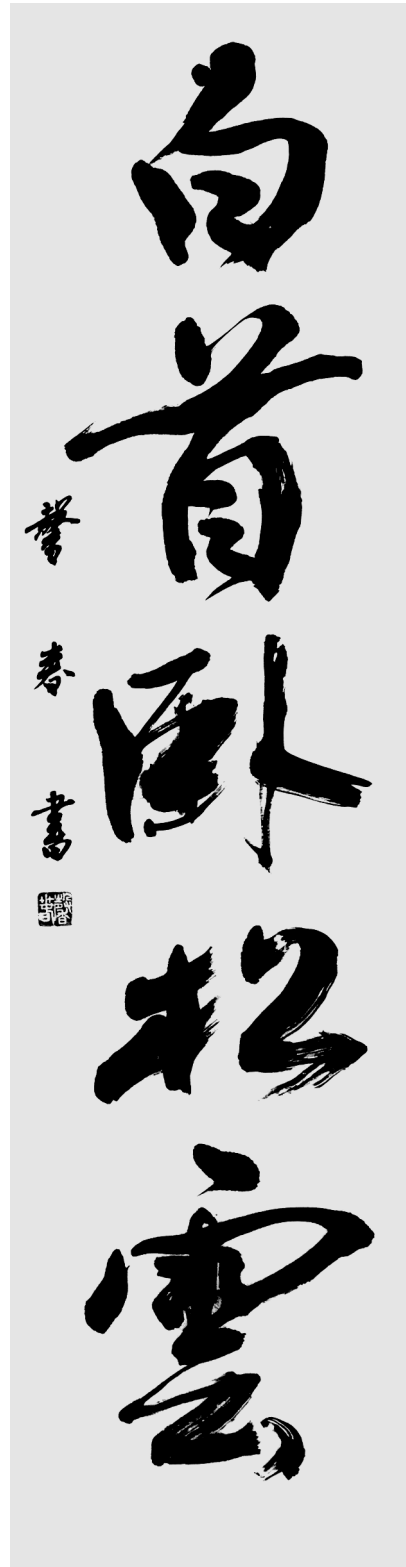 白首臥松雲
馨春書